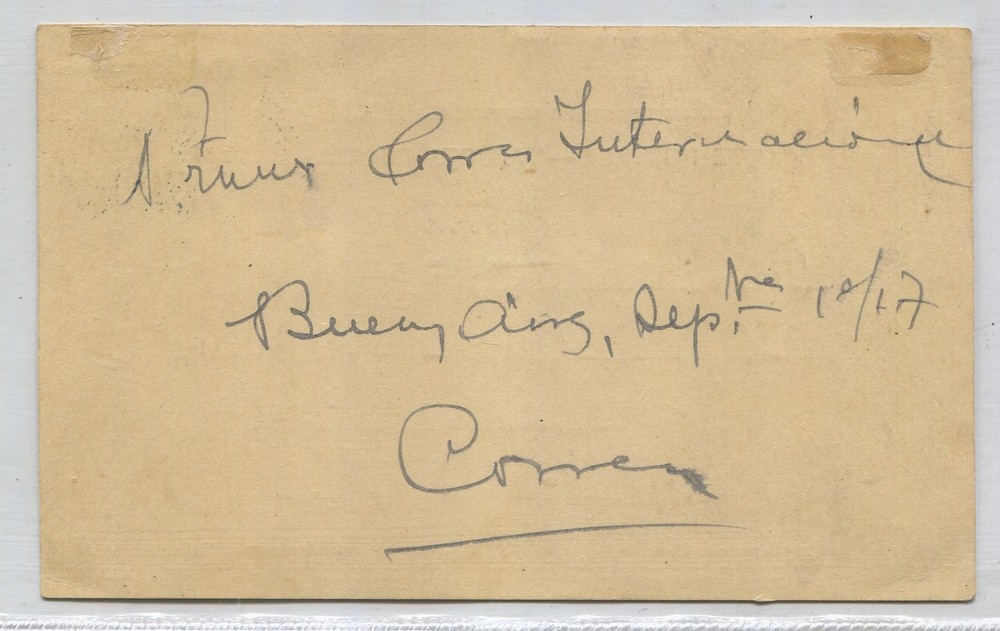 Correo Internacional
Buenos Aires, Sep.bre 10/17
Correa